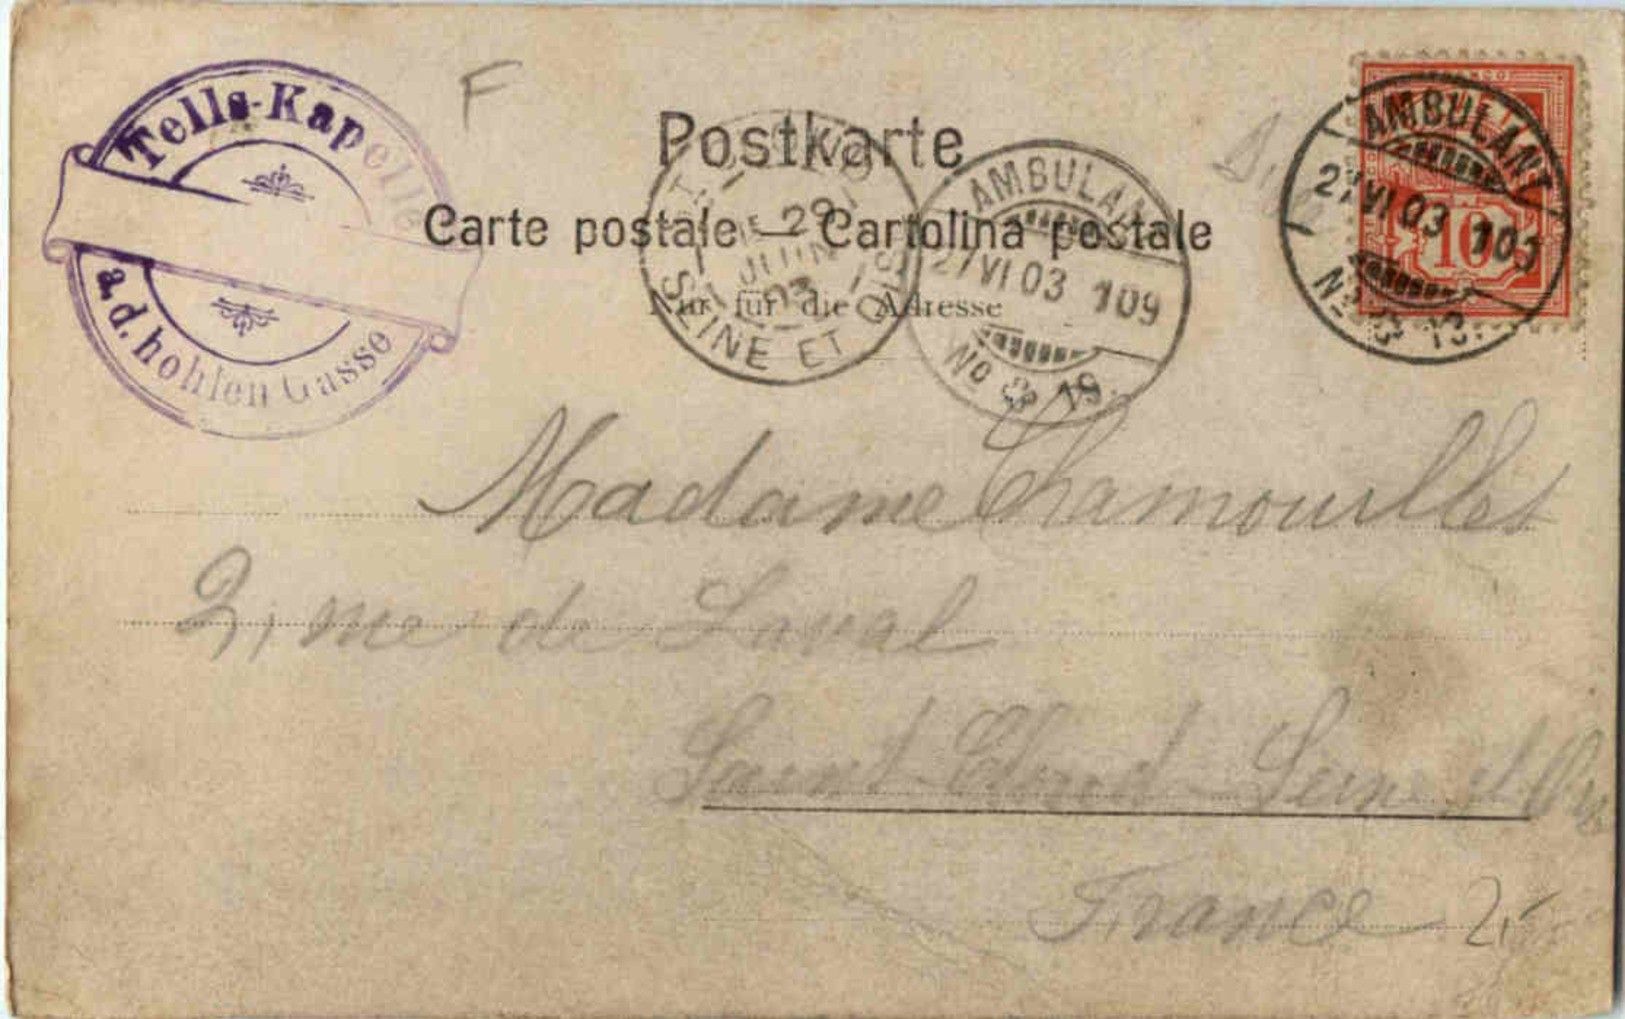 Tells-Kapelle
a.d. hohlen Gasse
F
Postkarte
Carte postale — Cartolina postale
Nur für die Adresse
29
JUIN
03
SEINE ET OISE
AMBULANT
27 VI 03 109
No 3 19.
AMBULANT
27 VI 03 109
10
Madame Chamouilles
2, rue de Laval
Saint-Cloud - Seine et Oise
France
2,-